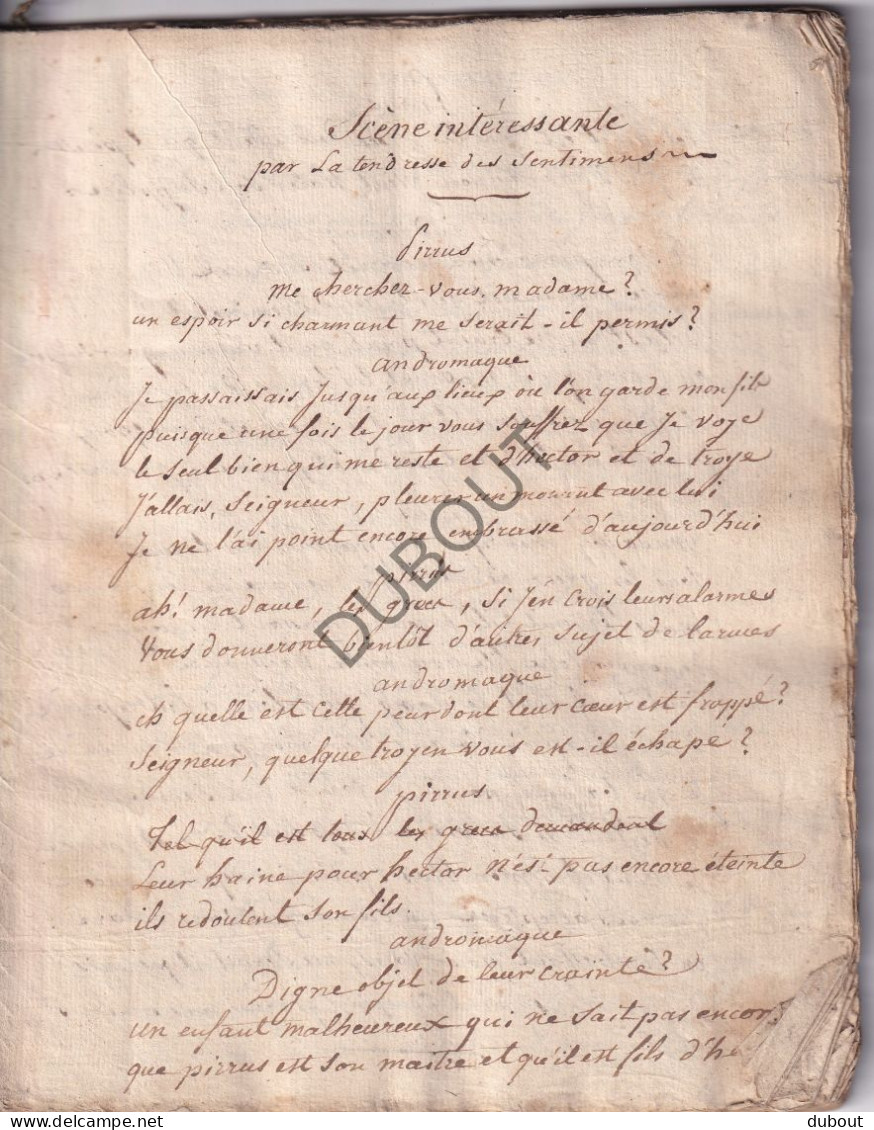 Scène intéressante
par La tendresse des Sentimens
Pirrus
me cherchez-vous, madame?
un espoir si charmant me serait-il permis?
andromaque
Je passaissais Jusqu'aux lieux où l'on garde mon fils
puisque une fois le jour vous souffrez que Je voye
le seul bien qui me reste et d'hector et de troye
J'allais, Seigneur, pleurer un moment avec lui
Je ne l'ai point encore embrassé d'aujourd'hui
pirrus
ah! madame, les grecs, si J'en crois leurs alarmes
Vous donneront bientôt d'autres sujet de larmes
andromaque
eh quelle est cette peur dont leur cœur est frappé?
Seigneur, quelque troyen vous est-il échapé?
pirrus
Tel qu'il est tous les grecs demandent
Leur haine pour hector n'est pas encore éteinte
ils redoutent son fils.
andromaque
Digne objet de leur crainte?
un enfant malheureux qui ne sait pas encor
que pirrus est son maitre et qu'il est fils d'he
DUBOUT
www.delcampe.net
dubout